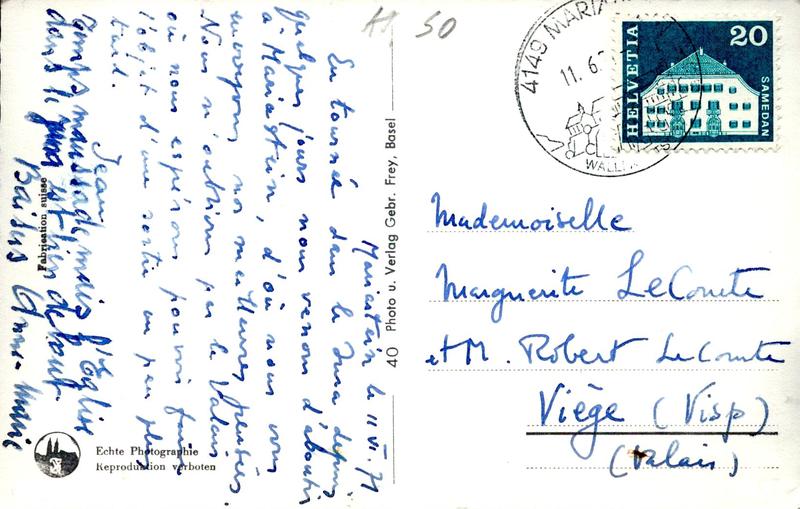 A 50
4149 MARIA
11.6.7
WALLF
HELVETIA
20
SAMEDAN
Mariastein le 11 VI. 71
En tournée dans le Jura depuis
quelques jours nous venons d'aboutir
à Mariastein, d'où nous vous
envoyons nos meilleures pensées.
Nous n'oublions pas le Valais
où nous espérons pouvoir faire
l'objet d'une sortie un peu plus
tard.
Jean
temps maussade mais l'Eglise
dans le Jura est bien debout.
Baisers Anne-Marie
Fabrication suisse
Echte Photographie
Reproduktion verboten
40 Photo u. Verlag Gebr. Frey, Basel
Mademoiselle
Marguerite LeComte
et M. Robert LeComte
Viège (Visp)
(Valais)